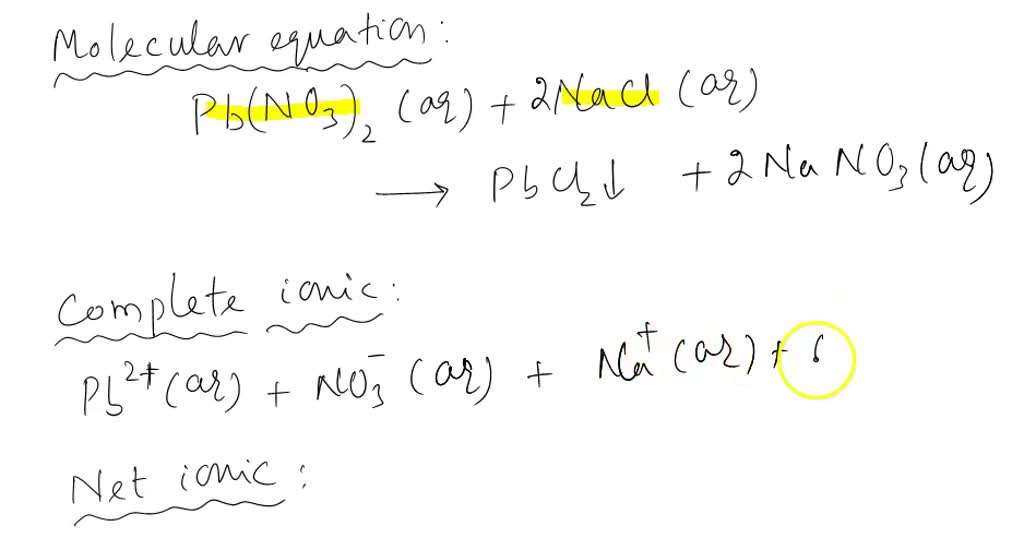 Molecular equation:
Pb(NO₃)₂ (aq) + 2NaCl (aq)
→ PbCl₂↓ + 2NaNO₃(aq)
Complete ionic:
Pb²⁺(aq) + NO₃⁻(aq) + Na⁺(aq) +
Net ionic: